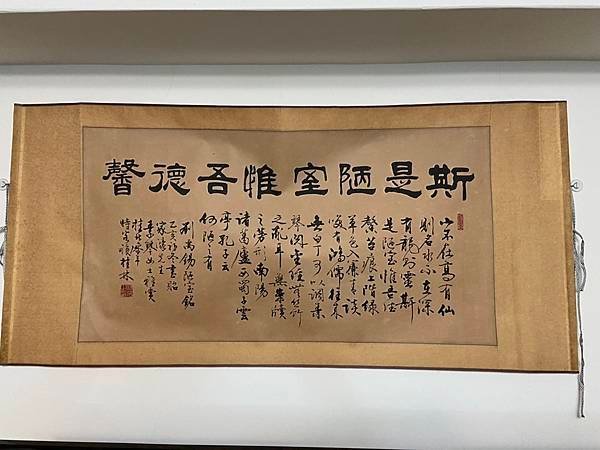 斯是陋室惟吾德馨
山不在高有仙
則名水不在深
有龍則靈斯
是陋室惟吾德
馨苔痕上階綠
草色入簾青談
笑有鴻儒往來
無白丁可以調素
琴閱金經無絲竹
之亂耳無案牘
之勞形南陽
諸葛廬西蜀子雲
亭孔子云
何陋之有
劉禹錫陋室銘
乙亥初冬書貽
先生
女士雅賞
桂林